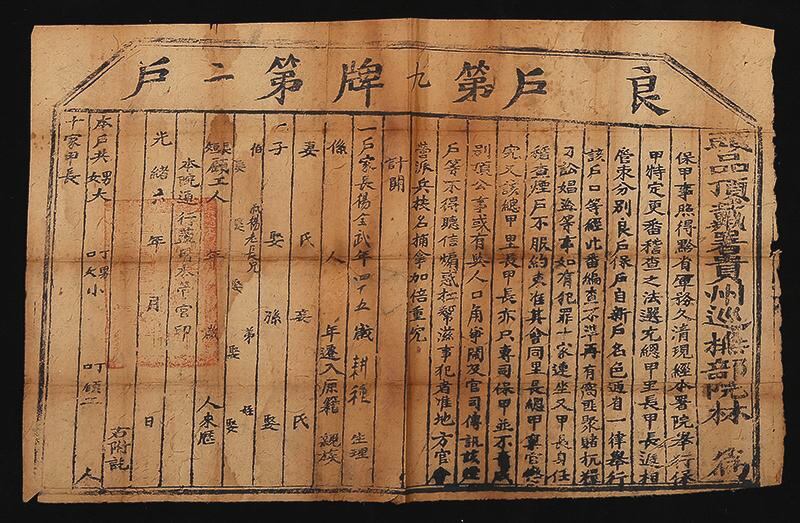 良戶第九牌第二戶
頭品頂戴署貴州巡撫部院林 為
保甲事照得黔省軍務久清現經本署院舉行保
甲特定更番稽查之法選充總甲里長甲長遞相
管束分別良戶保戶自新戶名色通省一律舉行
該戶口等經此番編查不准再有窩匪聚賭抗糧
刁訟娼盜等事如有犯罪十家連坐又甲長身任
稽查煙戶不服約束准其會同里長總甲稟官
究又該總甲里長甲長亦只專司保甲並不
別項公事或有與人口角爭鬧及官司傳訊該
戶等不得聽信煽惑扛幫滋事犯者准地方官會
營派兵按名捕拿加倍重究
計開
一戶家長楊全武年四十五歲 耕種 生理
係 人 年遷入原籍 親族
妻 氏 妾 氏
子 娶 孫 娶
伯 叔楊老長兄 娶 弟 娶 姪 娶
長短顧工人 年 歲 人來歷
本院通行蓋用本管官印
光緒六年 月 日 右附註
本戶共男女大 丁口男女小 丁口顧工 人
十家甲長